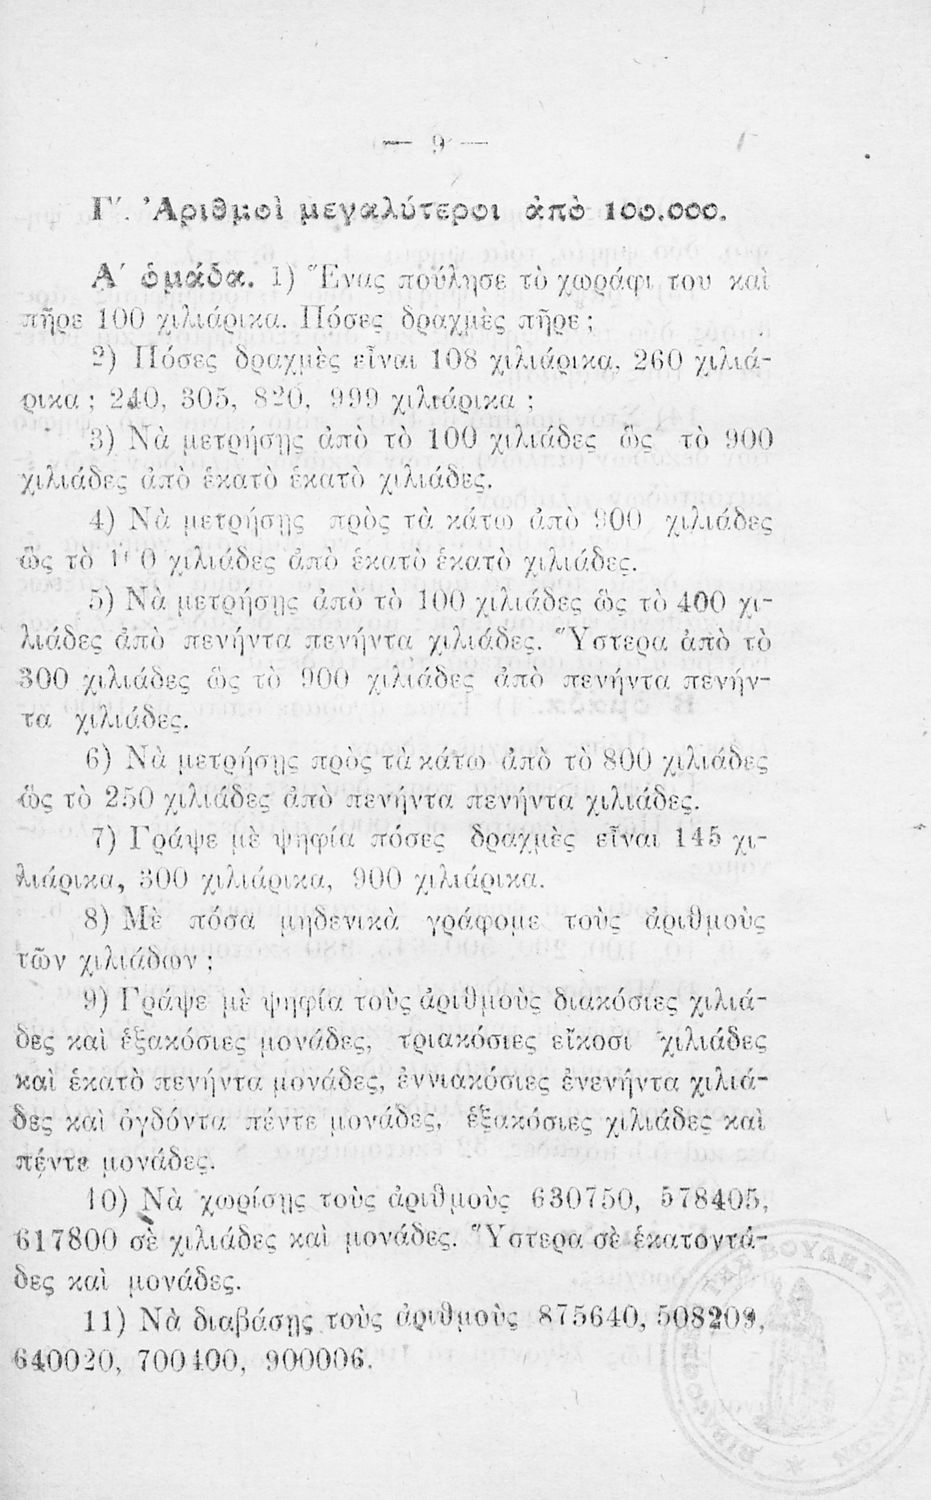 — 9 —
Γ΄. Ἀριθμοὶ μεγαλύτεροι ἀπὸ 100.000.
Α΄ ὁμάδα. 1) Ἕνας πούλησε τὸ χωράφι του καὶ
πῆρε 100 χιλιάρικα. Πόσες δραχμὲς πῆρε;
2) Πόσες δραχμὲς εἶναι 108 χιλιάρικα, 260 χιλιά-
ρικα; 240, 305, 820, 999 χιλιάρικα;
3) Νὰ μετρήσῃς ἀπὸ τὸ 100 χιλιάδες ὣς τὸ 900
χιλιάδες ἀπὸ ἑκατὸ ἑκατὸ χιλιάδες.
4) Νὰ μετρήσῃς πρὸς τὰ κάτω ἀπὸ 900 χιλιάδες
ὣς τὸ 100 χιλιάδες ἀπὸ ἑκατὸ ἑκατὸ χιλιάδες.
5) Νὰ μετρήσῃς ἀπὸ τὸ 100 χιλιάδες ὣς τὸ 400 χι-
λιάδες ἀπὸ πενήντα πενήντα χιλιάδες. Ὕστερα ἀπὸ τὸ
300 χιλιάδες ὣς τὸ 900 χιλιάδες ἀπὸ πενήντα πενήν-
τα χιλιάδες.
6) Νὰ μετρήσῃς πρὸς τὰ κάτω ἀπὸ τὸ 800 χιλιάδες
ὣς τὸ 250 χιλιάδες ἀπὸ πενήντα πενήντα χιλιάδες.
7) Γράψε μὲ ψηφία πόσες δραχμὲς εἶναι 145 χι-
λιάρικα, 300 χιλιάρικα, 900 χιλιάρικα.
8) Μὲ πόσα μηδενικὰ γράφομε τοὺς ἀριθμοὺς
τῶν χιλιάδων;
9) Γράψε μὲ ψηφία τοὺς ἀριθμοὺς διακόσιες χιλιά-
δες καὶ ἑξακόσιες μονάδες, τριακόσιες εἴκοσι χιλιάδες
καὶ ἑκατὸ πενήντα μονάδες, ἐννιακόσιες ἐνενήντα χιλιά-
δες καὶ ὀγδόντα πέντε μονάδες, ἑξακόσιες χιλιάδες καὶ
πέντε μονάδες.
10) Νὰ χωρίσῃς τοὺς ἀριθμοὺς 630750, 578405,
617800 σὲ χιλιάδες καὶ μονάδες. Ὕστερα σὲ ἑκατοντά-
δες καὶ μονάδες.
11) Νὰ διαβάσῃς τοὺς ἀριθμοὺς 875640, 508209,
640020, 700400, 900006.